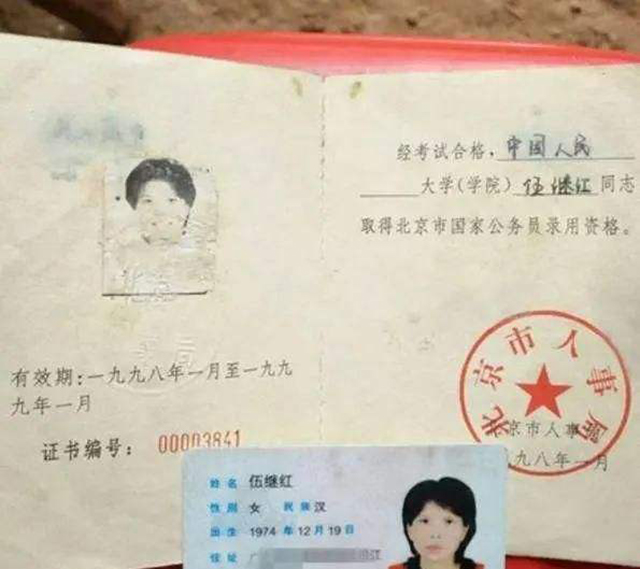 有效期:一九九八年一月至一九九
九年一月
证书编号: 00003841
经考试合格,中国人民
大学(学院)伍继红同志
取得北京市国家公务员录用资格。
北京市人事局
北京市人事局
一九九八年一月
姓名 伍继红
性别 女 民族 汉
出生 1974 年 12 月 19 日
住址